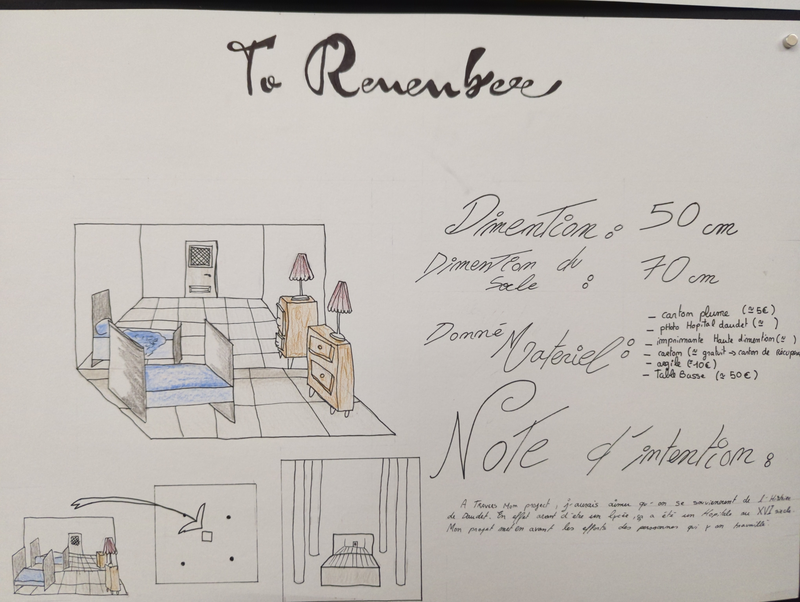 To Remember
Dimention : 50 cm
Dimention du
Socle : 70 cm
Donné Matériel :
- carton plume (≃ 5€)
- photo Hopital daudet (≃ )
- imprimante Haute dimention (≃ )
- carton (≃ gratuit → carton de Récupera
- argile (≃10€)
- Table Basse (≃ 50€)
Note d'intention :
A Travers Mon project, j'aurais aimer qu-on se souviennent de l'Histoire
de Daudet. En effet avant d'etre un lycée, ça a été un Hôpitale au XVI siecle.
Mon projet met en avant les efforts des personnes qui y on travaillé